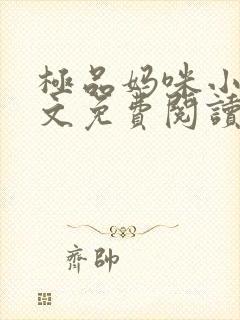 極品妈咪小
文免費閱讀
齊帥